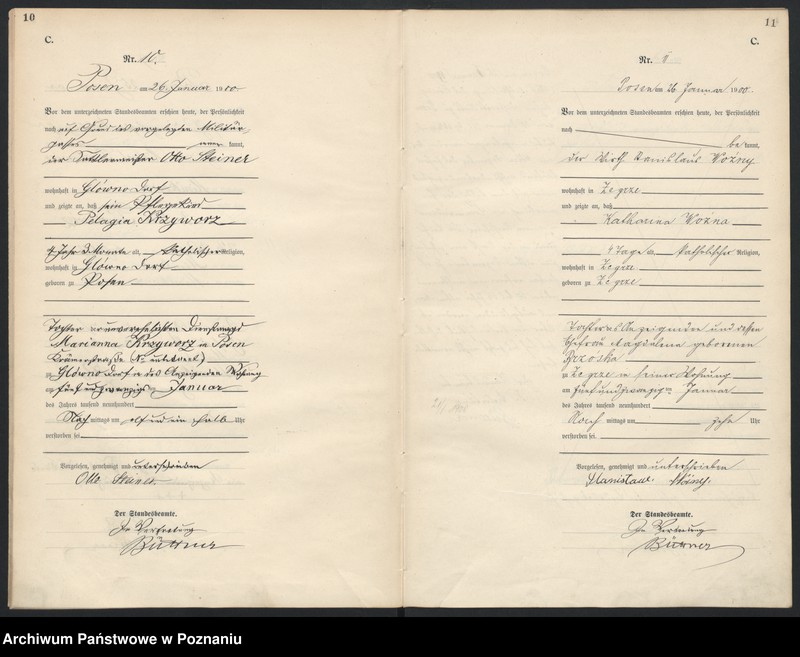 10
C.
Nr. 10.
Posen am 26. Januar 1900
Vor dem unterzeichneten Standesbeamten erschien heute, der Persönlichkeit
nach auf Grund des vorgelegten Militär
passes kannt,
der Sattlermeister Otto Steiner
wohnhaft in Glówno Dorf
und zeigte an, daß sein Pflegekind
Pelagia Krzyworz
Jahr 3 Monate alt, katholischer Religion,
wohnhaft in Glówno Dorf
geboren zu Posen
Tochter der unverehelichten Dienstmagd
Marianna Krzyworz in Posen
Krämerstraße No unbekannt
zu Glówno Dorf in des Anzeigenden Wohnung
am fünf und zwanzigsten Januar
des Jahres tausend neunhundert
Nach mittags um elf und ein halb Uhr
verstorben sei.
Vorgelesen, genehmigt und unterschrieben
Otto Steiner
Der Standesbeamte.
In Vertretung
Büttner
11
C.
Nr. 11
Posen am 26. Januar 1900.
Vor dem unterzeichneten Standesbeamten erschien heute, der Persönlichkeit
nach
be kannt,
der Wirth Stanislaus Wozny
wohnhaft in Zegrze
und zeigte an, daß
Katharina Wozna
4 Tage a katholischer Religion,
wohnhaft in Zegrze
geboren zu Zegrze
Tochter des Anzeigenden und dessen
Ehefrau Magdalena geborenen
Brzoska
zu Zegrze in seiner Wohnung
am fünfundzwanzigsten Januar
des Jahres tausend neunhundert
Nach mittags um zehn Uhr
verstorben sei.
Vorgelesen, genehmigt und unterschrieben
Stanisław Woźny.
Der Standesbeamte.
In Vertretung
Büttner
Archiwum Państwowe w Poznaniu